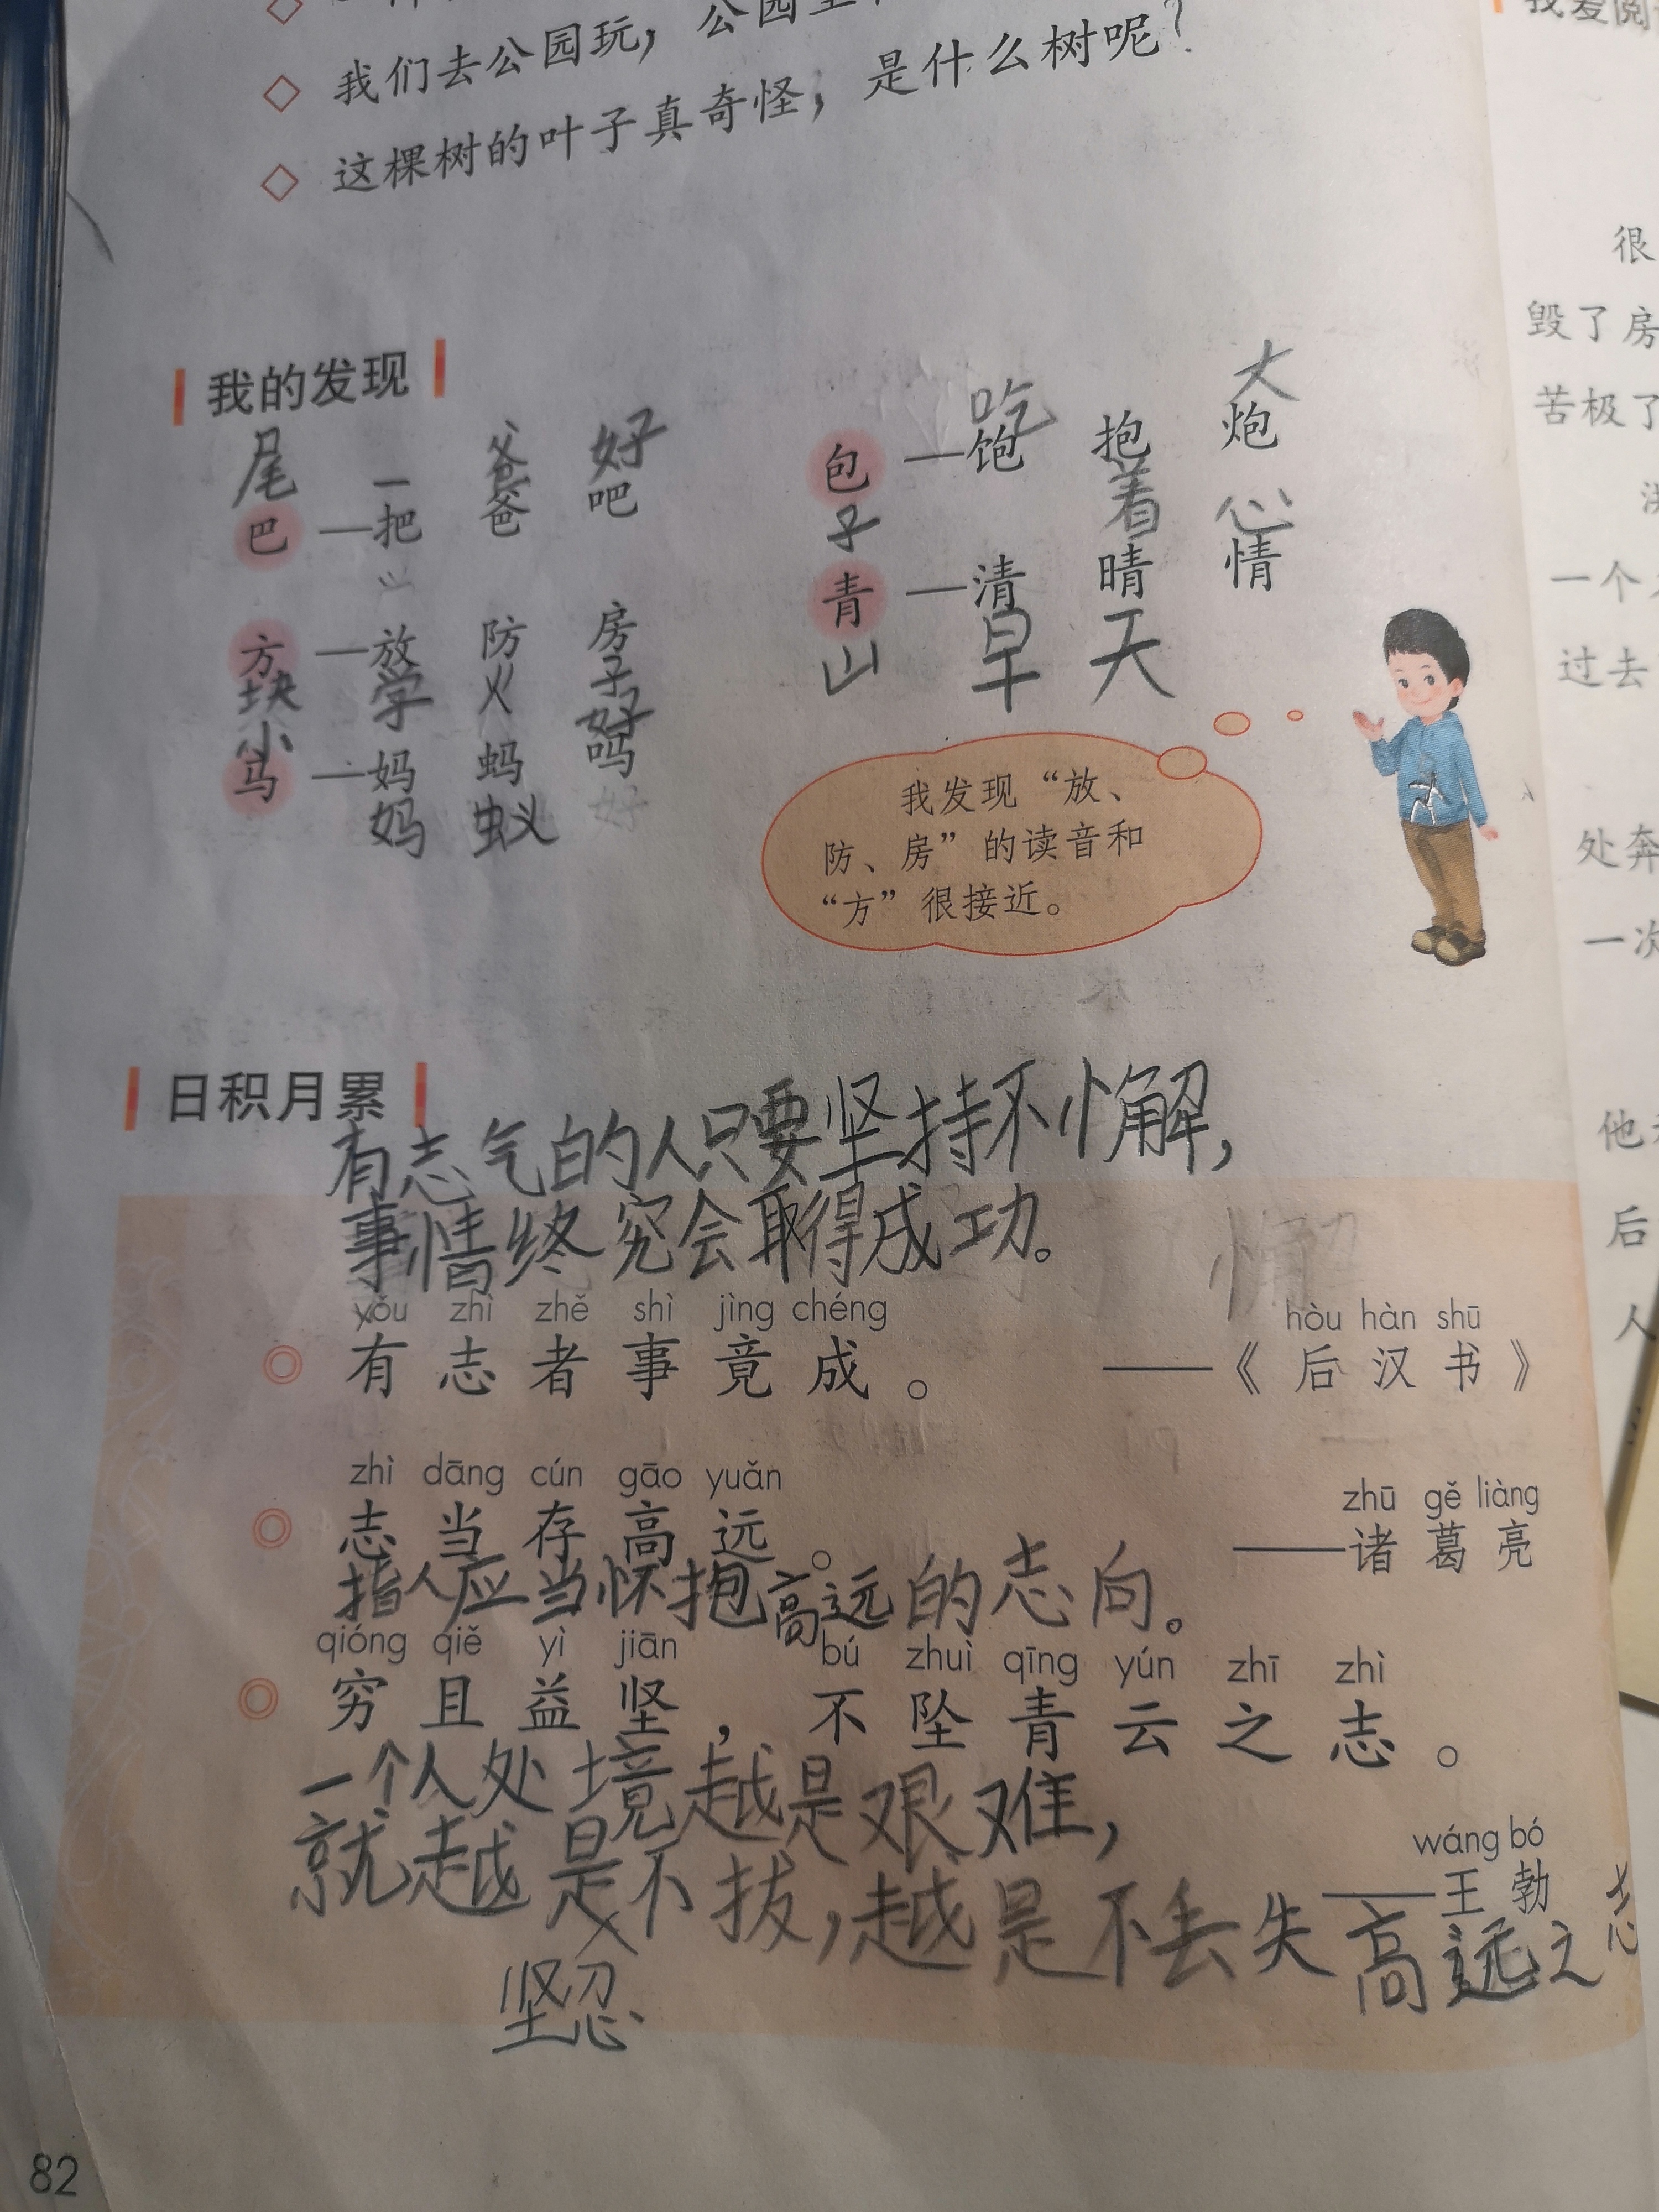 我们去公园玩，公园里
这棵树的叶子真奇怪，是什么树呢？
我的发现
尾 爸 好
巴——一把 爸 吧
方——放 防 房
块 学 火 子
小 好
马——妈 蚂 吗
妈 蚁 好
吃 大
包——饱 抱 炮
子 着 心
青——清 晴 情
山 早 天
我发现“放、
防、房”的读音和
“方”很接近。
日积月累
有志气的人只要坚持不懈，
事情终究会取得成功。
懈
yǒu zhì zhě shì jìng chéng
有志者事竟成。
hòu hàn shū
——《后汉书》
zhì dāng cún gāo yuǎn
志当存高远。
zhū gě liàng
——诸葛亮
指人应当怀抱高远的志向。
qióng qiě yì jiān bú zhuì qīng yún zhī zhì
穷且益坚，不坠青云之志。
一个人处境越是艰难，
wáng bó
——王勃
就越是不拔，越是不丢失高远之志
坚忍
82
我爱阅
很
毁了房
苦极了
一个
过去
处奔
一次
他
后
人